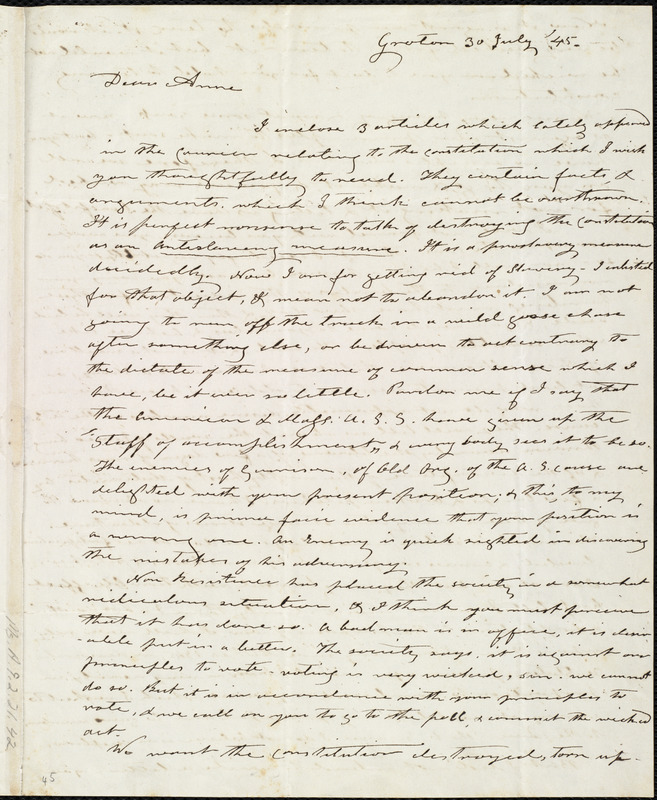 Groton 30 July '45.
Dear Anne
I inclose 3 articles which lately appeared
in the Courier relating to the constitution which I wish
you thoughtfully to read. They contain facts, &
arguments which I think cannot be overthrown.
It is perfect nonsense to talk of destroying the constitution
as an Antislavery measure. It is a proslavery measure
decidedly. Now I am for getting rid of Slavery - I enlisted
for that object, & mean not to abandon it. I am not
going to run off the track in a wild goose chase
after something else, or be driven to act contrary to
the dictate of the measure of common sense which I
have, be it ever so little. Pardon me if I say that
the American & Mass. A. S. S. have given up the
"Staff of accomplishment", & every body sees it to be so.
The enemies of Garrison, of Old Org. of the A. S. cause are
delighted with your present position; & this, to my
mind, is prima facie evidence that your position is
a wrong one. An Enemy is quick sighted in discovering
the mistakes of his adversary.
Non Resistance has placed the society in a somewhat
ridiculous situation, & I think you must perceive
that it has done so. A bad man is in office, it is desir-
able put in a better. The society says, it is against our
principles to vote - voting is very wicked, sin. we cannot
do so. But it is in accordance with your principles to
vote, & we call on you to go to the poll, & commit the wicked
act.
We want the constitution destroyed, torn up.
45